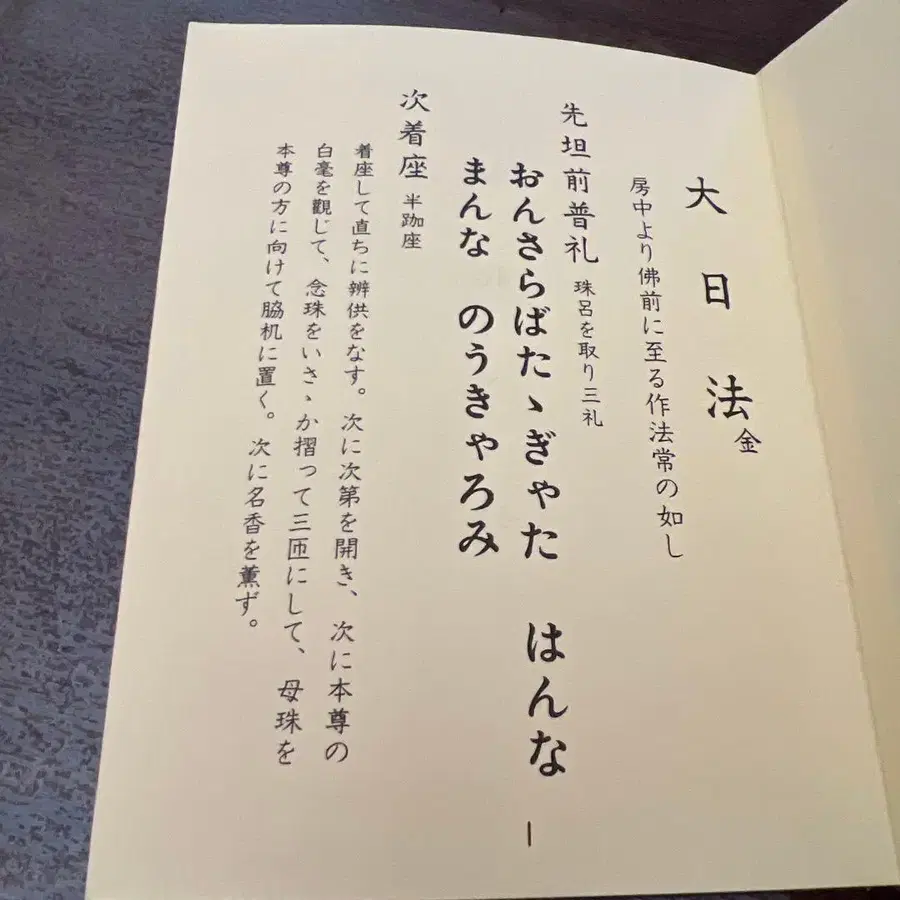 大日法 金
房中より佛前に至る作法常の如し
先坦前普礼 珠呂を取り三礼
おんさらばたゝぎゃた はんな
まんな のうきゃろみ
次着座 半跏座
着座して直ちに辨供をなす。次に次第を開き、次に本尊の
白毫を觀じて、念珠をいさゝか摺って三匝にして、母珠を
本尊の方に向けて脇机に置く。次に名香を薫ず。
1